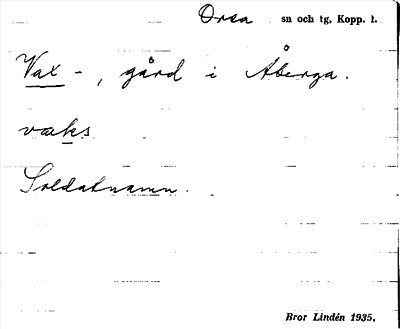 Orsa sn och tg, Kopp. l.
Vax -, gård i Åberga.
vaks
Soldatnamn.
Bror Lindén 1935.